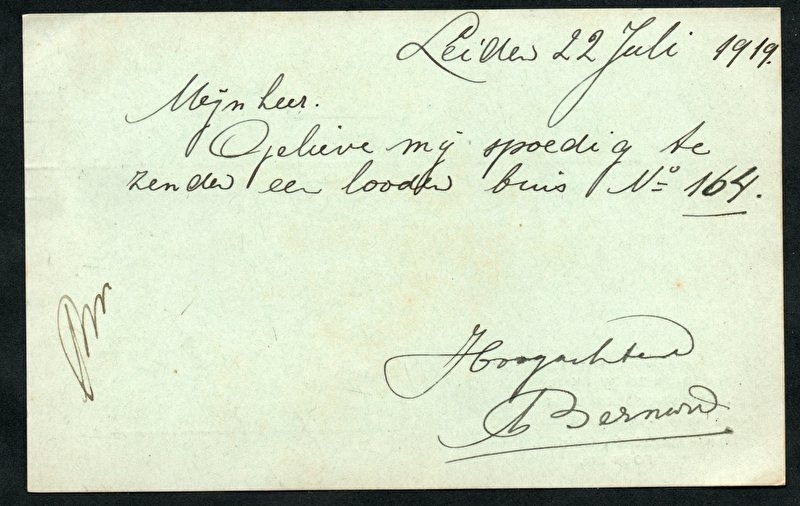 Leiden 22 Juli 1919.
Mijnheer.
Gelieve mij spoedig te
zenden een looden buis No 164.
Hoogachtend